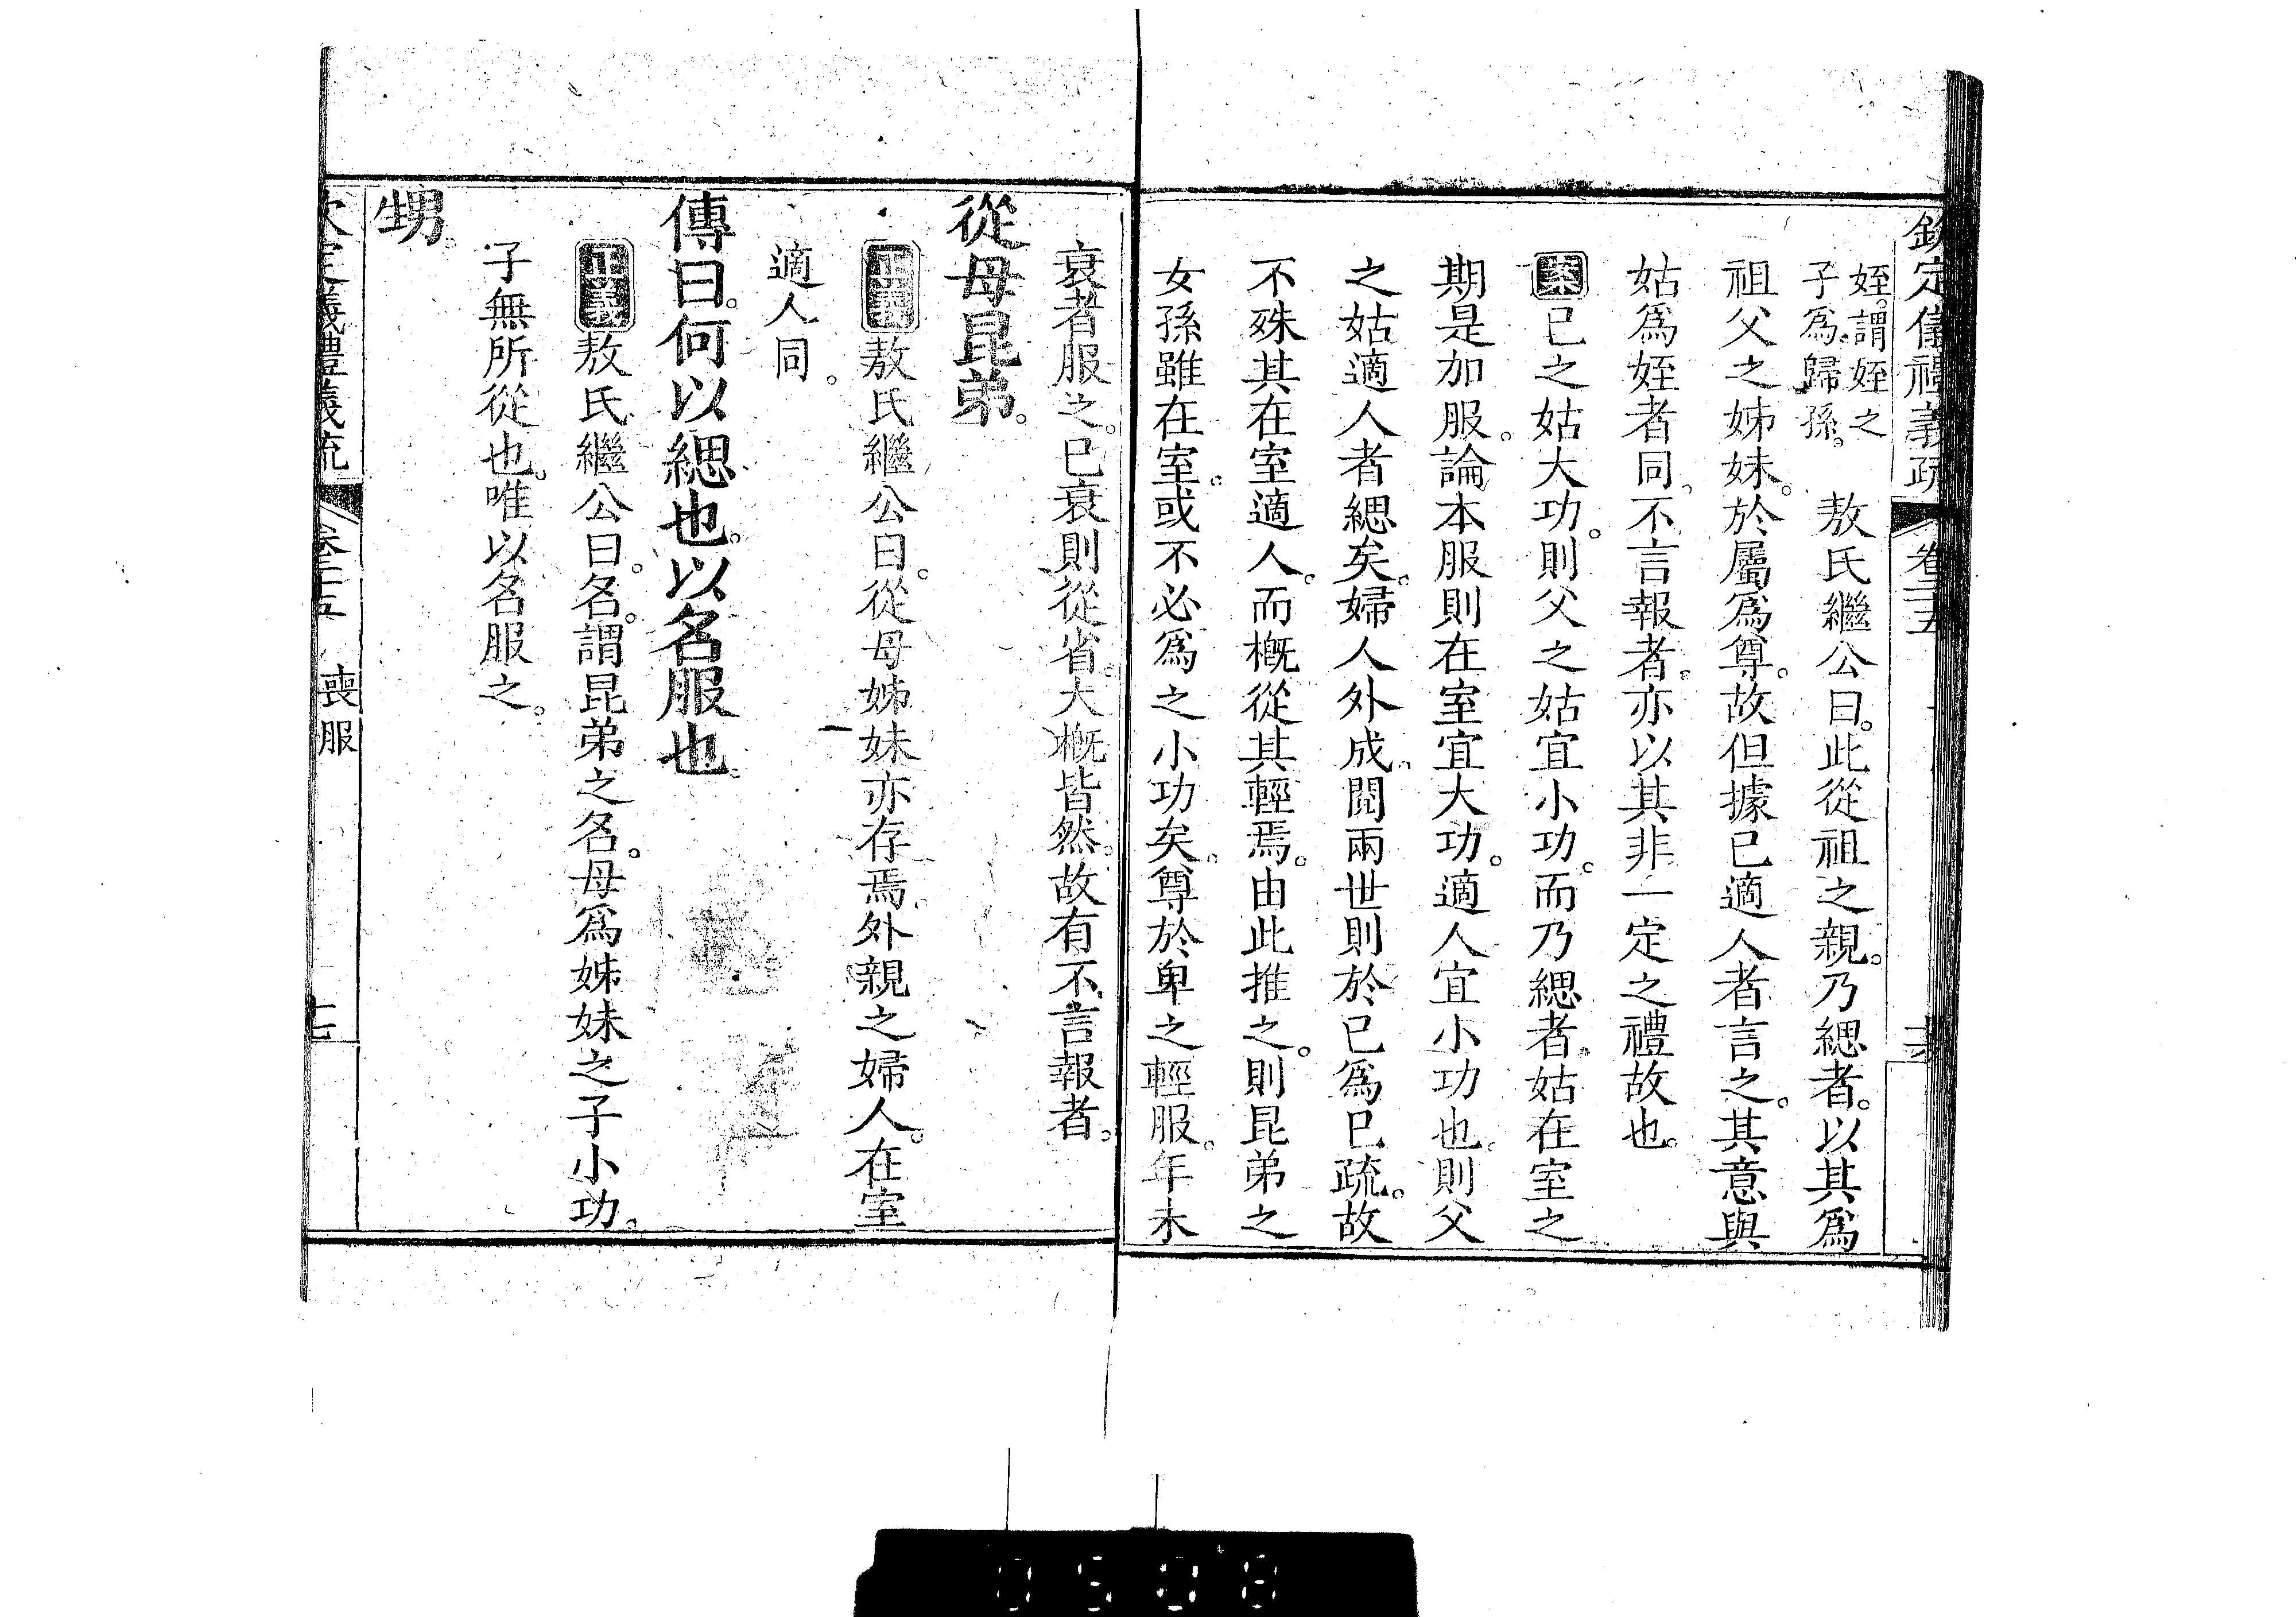 欽定儀禮義疏 卷二十五
姪。謂姪之
子爲歸孫。
敖氏繼公曰。此從祖之親。乃緦者。以其爲
祖父之姊妹。於屬爲尊。故但據已適人者言之。其意與
姑爲姪者同。不言報者。亦以其非一定之禮故也。
案已之姑大功。則父之姑宜小功。而乃緦者。姑在室之
期是加服。論本服則在室宜大功。適人宜小功也。則父
之姑適人者緦矣。婦人外成。閱兩世則於已爲已疏。故
不殊其在室適人。而槪從其輕焉。由此推之。則昆弟之
女孫雖在室。或不必爲之小功矣。尊於卑之輕服。年未
衰者服之。已衰則從省。大槪皆然。故有不言報者。
從母昆弟。
正義敖氏繼公曰。從母姊妹亦存焉。外親之婦人。在室
適人同。
傳曰。何以緦也。以名服也。
正義敖氏繼公曰。名。謂昆弟之名。母爲姊妹之子小功。
子無所從也。唯以名服之。
甥。
欽定儀禮義疏 卷二十五 喪服 七